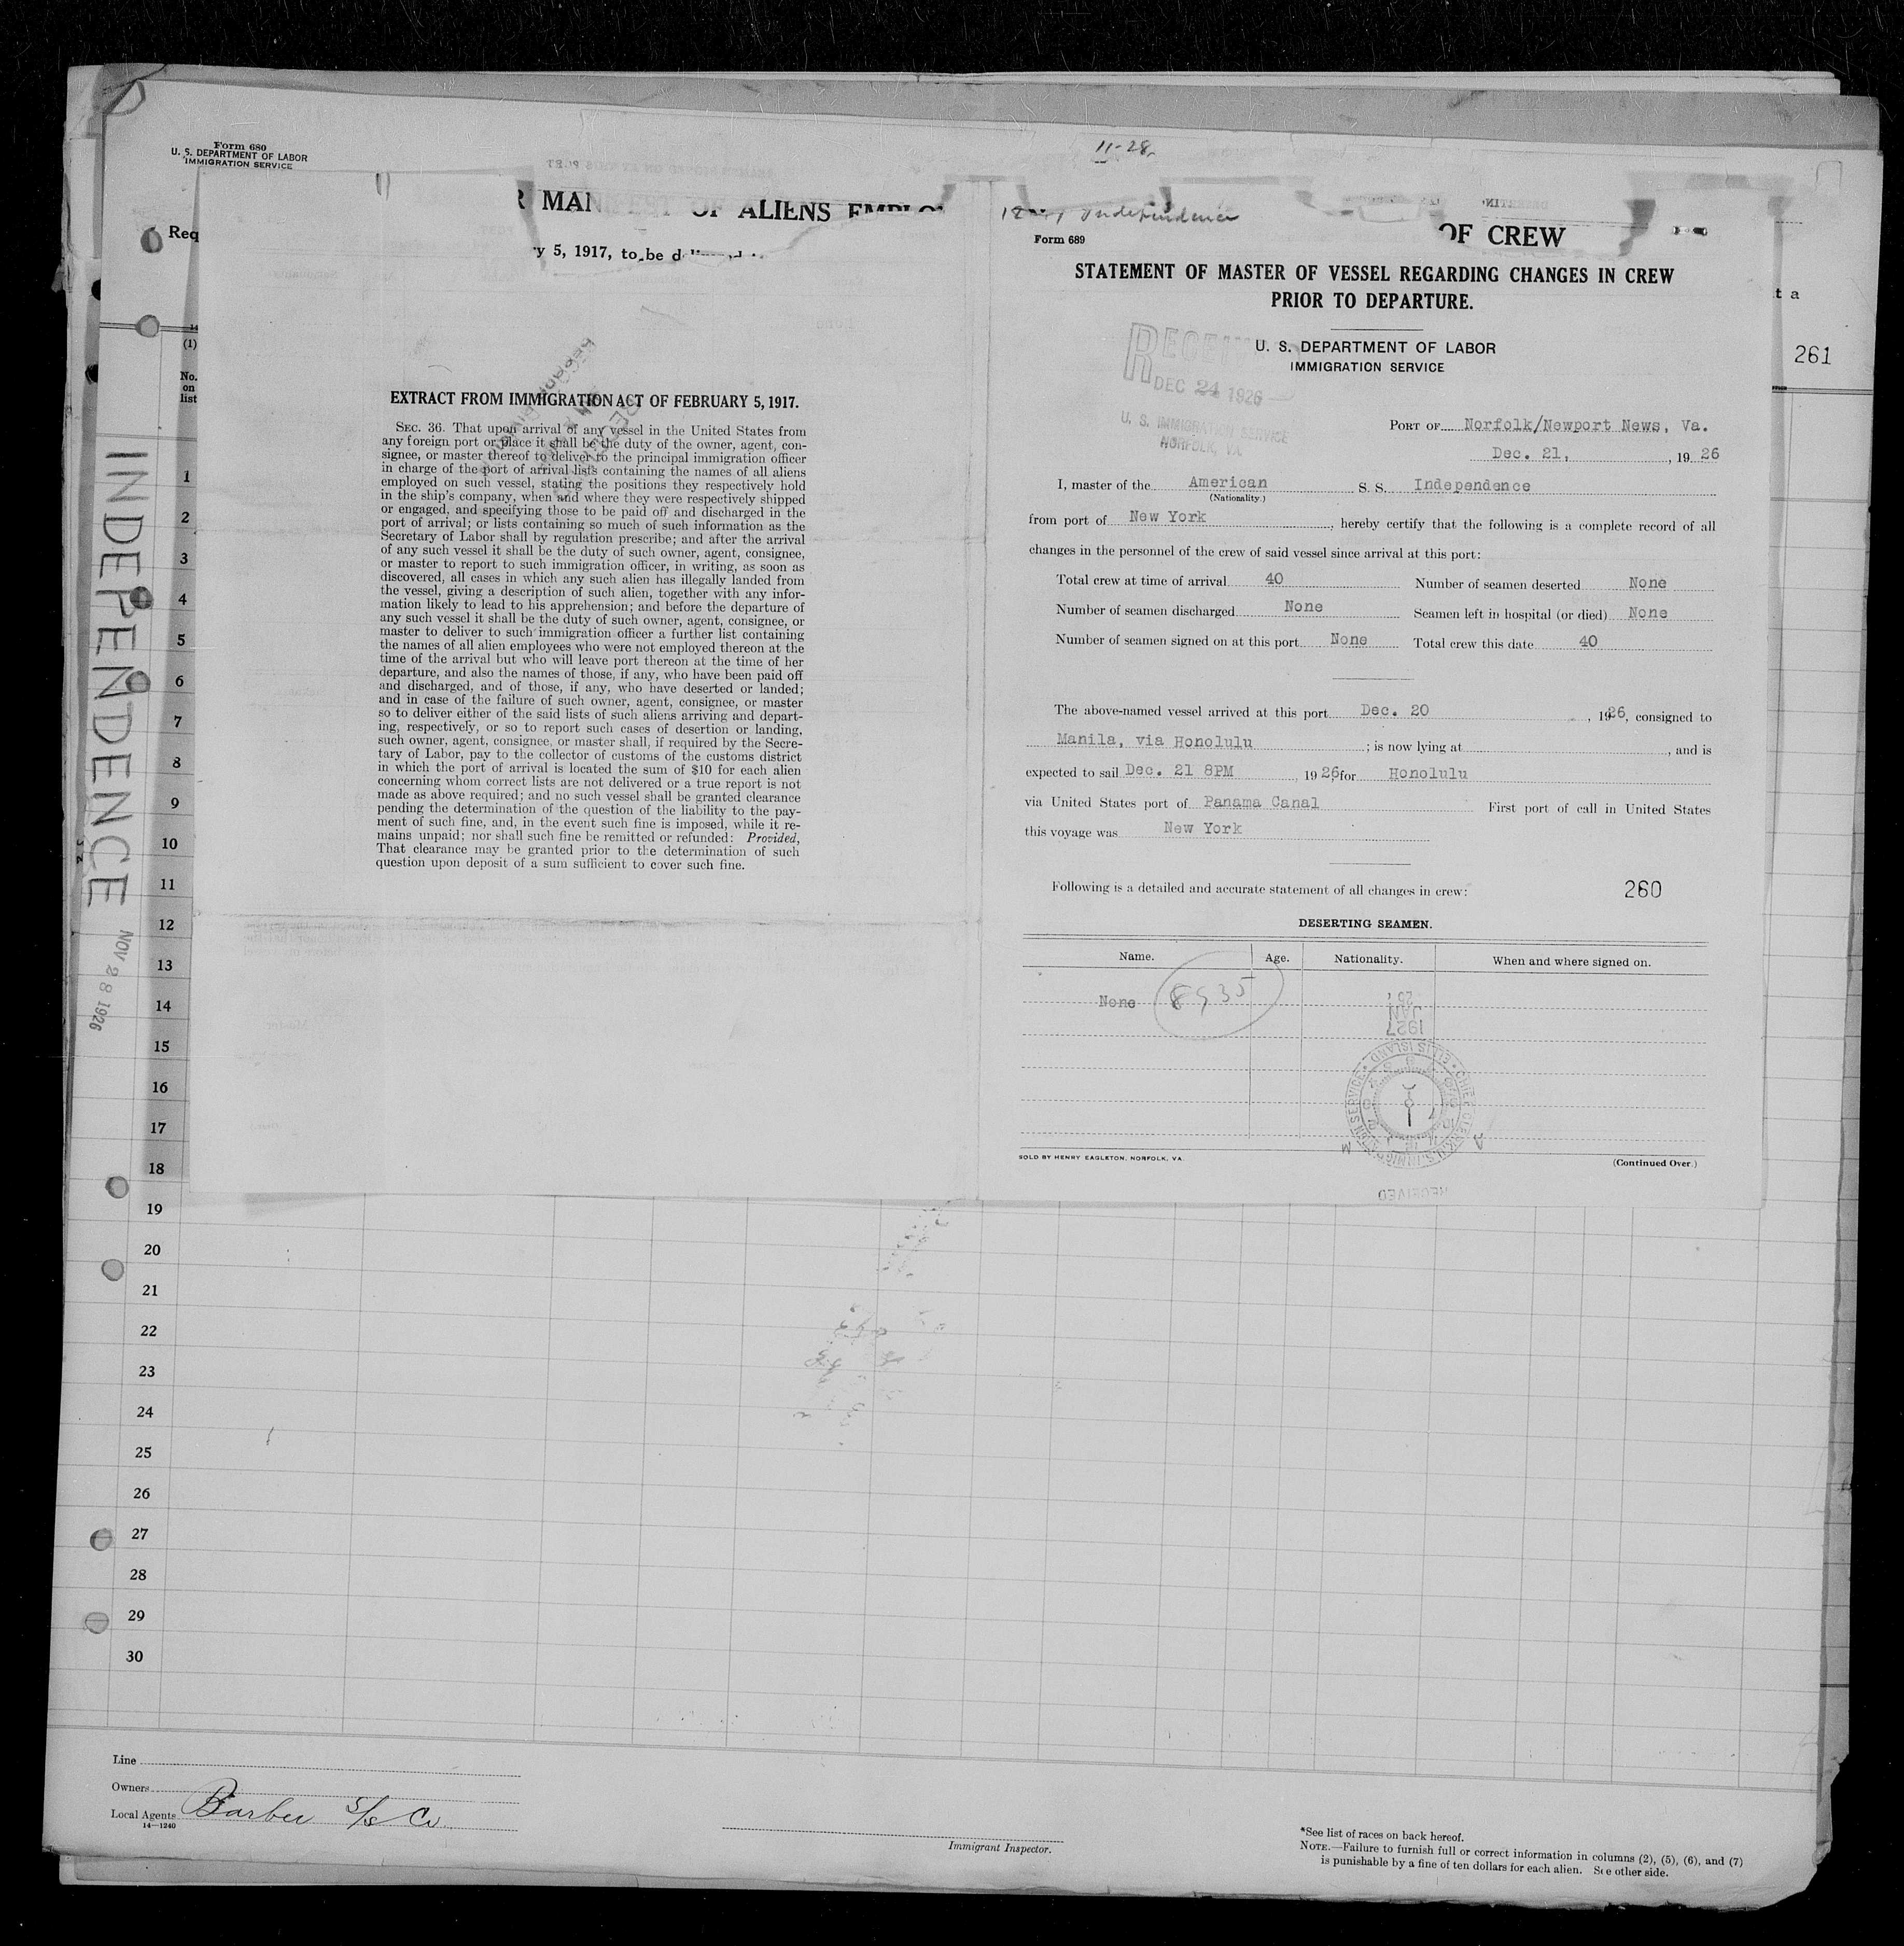 Form 680
U. S. DEPARTMENT OF LABOR
IMMIGRATION SERVICE
11-28
MAN OF ALIENS
Req
y 5, 1917, to be
Independence
Form 689
OF CREW
STATEMENT OF MASTER OF VESSEL REGARDING CHANGES IN CREW
PRIOR TO DEPARTURE.
U. S. DEPARTMENT OF LABOR
IMMIGRATION SERVICE
RECEIVED
DEC 24 1926
U. S. IMMIGRATION SERVICE
NORFOLK, VA.
t a
261
(1)
No.
on
list
INDEPENDENCE
NOV 28 1926
EXTRACT FROM IMMIGRATION ACT OF FEBRUARY 5, 1917.
SEC. 36. That upon arrival of any vessel in the United States from
any foreign port or place it shall be the duty of the owner, agent, con-
signee, or master thereof to deliver to the principal immigration officer
in charge of the port of arrival lists containing the names of all aliens
employed on such vessel, stating the positions they respectively hold
in the ship's company, when and where they were respectively shipped
or engaged, and specifying those to be paid off and discharged in the
port of arrival; or lists containing so much of such information as the
Secretary of Labor shall by regulation prescribe; and after the arrival
of any such vessel it shall be the duty of such owner, agent, consignee,
or master to report to such immigration officer, in writing, as soon as
discovered, all cases in which any such alien has illegally landed from
the vessel, giving a description of such alien, together with any infor-
mation likely to lead to his apprehension; and before the departure of
any such vessel it shall be the duty of such owner, agent, consignee, or
master to deliver to such immigration officer a further list containing
the names of all alien employees who were not employed thereon at the
time of the arrival but who will leave port thereon at the time of her
departure, and also the names of those, if any, who have been paid off
and discharged, and of those, if any, who have deserted or landed;
and in case of the failure of such owner, agent, consignee, or master
so to deliver either of the said lists of such aliens arriving and depart-
ing, respectively, or so to report such cases of desertion or landing,
such owner, agent, consignee, or master shall, if required by the Secre-
tary of Labor, pay to the collector of customs of the customs district
in which the port of arrival is located the sum of $10 for each alien
concerning whom correct lists are not delivered or a true report is not
made as above required; and no such vessel shall be granted clearance
pending the determination of the question of the liability to the pay-
ment of such fine, and, in the event such fine is imposed, while it re-
mains unpaid; nor shall such fine be remitted or refunded: Provided,
That clearance may be granted prior to the determination of such
question upon deposit of a sum sufficient to cover such fine.
PORT OF Norfolk/Newport News, Va.
Dec. 21, , 19 26
I, master of the American S. S. Independence
(Nationality.)
from port of New York, hereby certify that the following is a complete record of all
changes in the personnel of the crew of said vessel since arrival at this port:
Total crew at time of arrival 40 Number of seamen deserted None
Number of seamen discharged None Seamen left in hospital (or died) None
Number of seamen signed on at this port None Total crew this date 40
The above-named vessel arrived at this port Dec. 20 , 1926, consigned to
Manila, via Honolulu ; is now lying at , and is
expected to sail Dec. 21 8PM , 19 26 for Honolulu
via United States port of Panama Canal First port of call in United States
this voyage was New York
Following is a detailed and accurate statement of all changes in crew: 260
DESERTING SEAMEN.
Name. Age. Nationality. When and where signed on.
None 8535
JAN
1927
CHIEF CLERK U.S. IMMIGRATION SERVICE ELLIS ISLAND
A M
RECEIVED
SOLD BY HENRY EAGLETON, NORFOLK, VA.
(Continued Over.)
1
2
3
4
5
6
7
8
9
10
11
12
13
14
15
16
17
18
19
20
21
22
23
24
25
26
27
28
29
30
Line
Owners
Local Agents Barber S/S Co.
14—1240
Immigrant Inspector.
*See list of races on back hereof.
NOTE.—Failure to furnish full or correct information in columns (2), (5), (6), and (7)
is punishable by a fine of ten dollars for each alien. See other side.